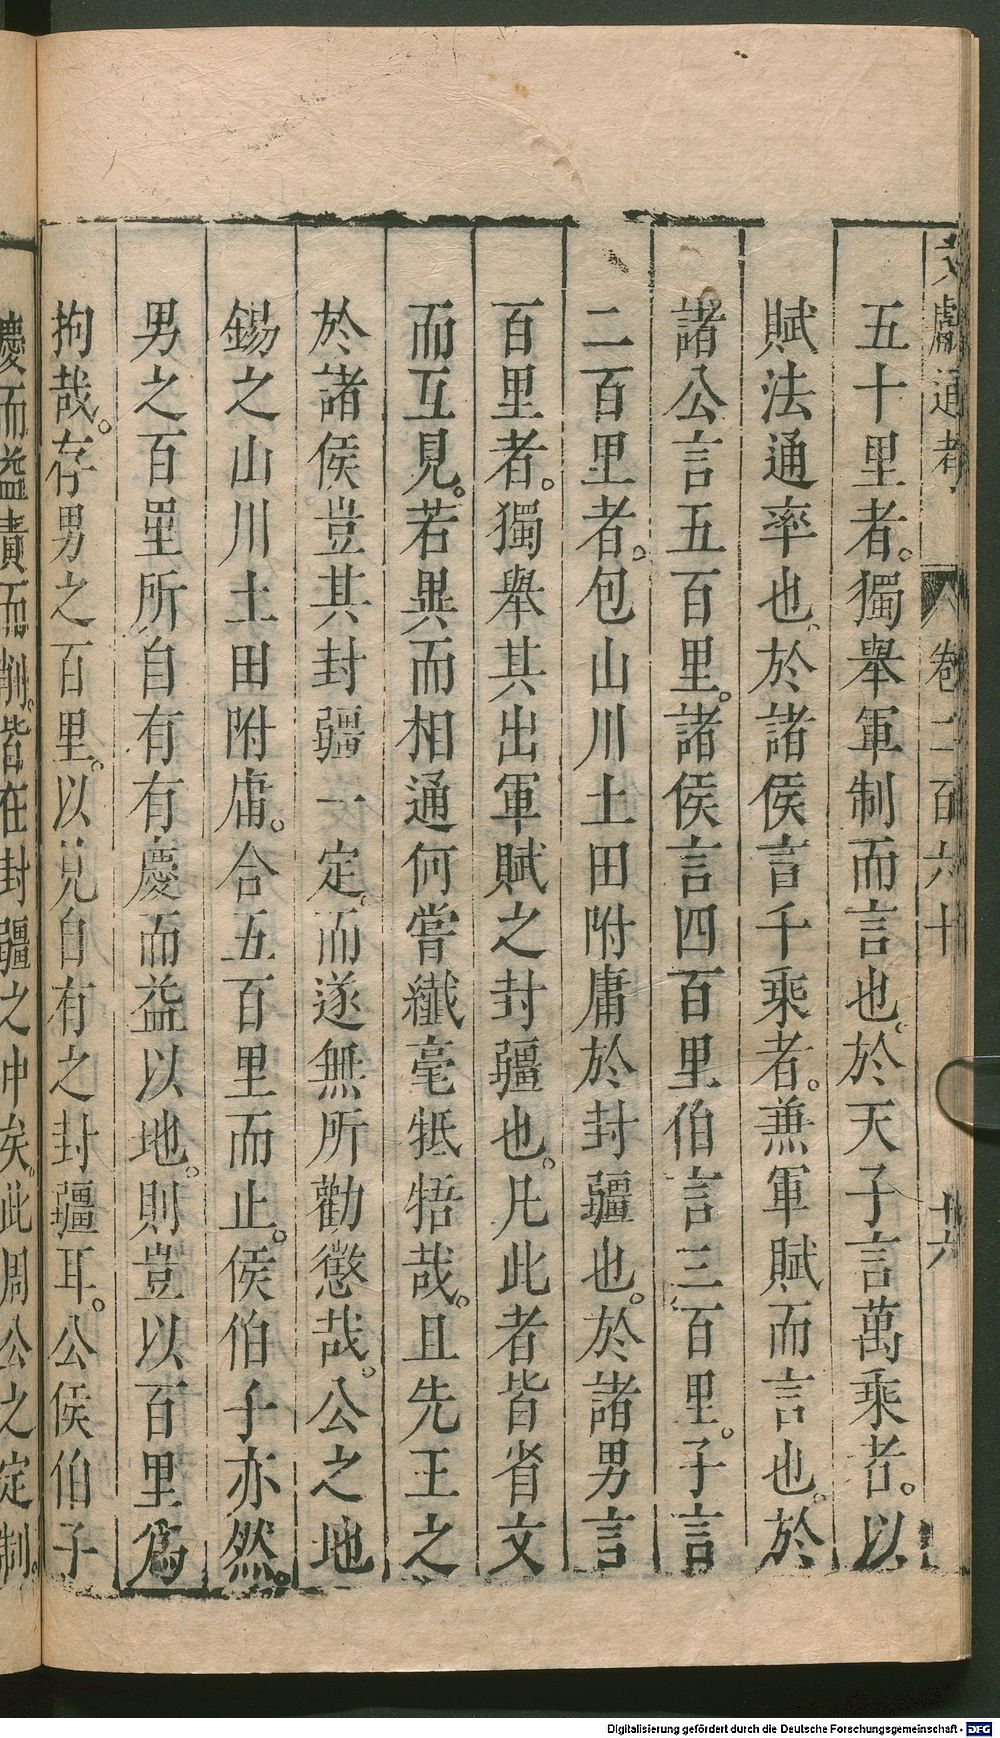 文獻通考 卷二百六十 廿六
五十里者。獨舉軍制而言也。於天子言萬乘者。以
賦法通率也。於諸侯言千乘者。兼軍賦而言也。於
諸公言五百里。諸侯言四百里伯言三百里。子言
二百里者。包山川土田附庸於封疆也。於諸男言
百里者。獨舉其出軍賦之封疆也。凡此者皆省文
而互見。若異而相通何嘗纖毫牴牾哉。且先王之
於諸侯豈其封疆一定。而遂無所勸懲哉。公之地
錫之山川土田附庸。合五百里而止。侯伯子亦然。
男之百里所自有有慶而益以地。則豈以百里爲
拘哉。存男之百里。以見自有之封疆耳。公侯伯子
慶而益責而削。皆在封疆之中矣。此周公之定制。
Digitalisierung gefördert durch die Deutsche Forschungsgemeinschaft - DFG